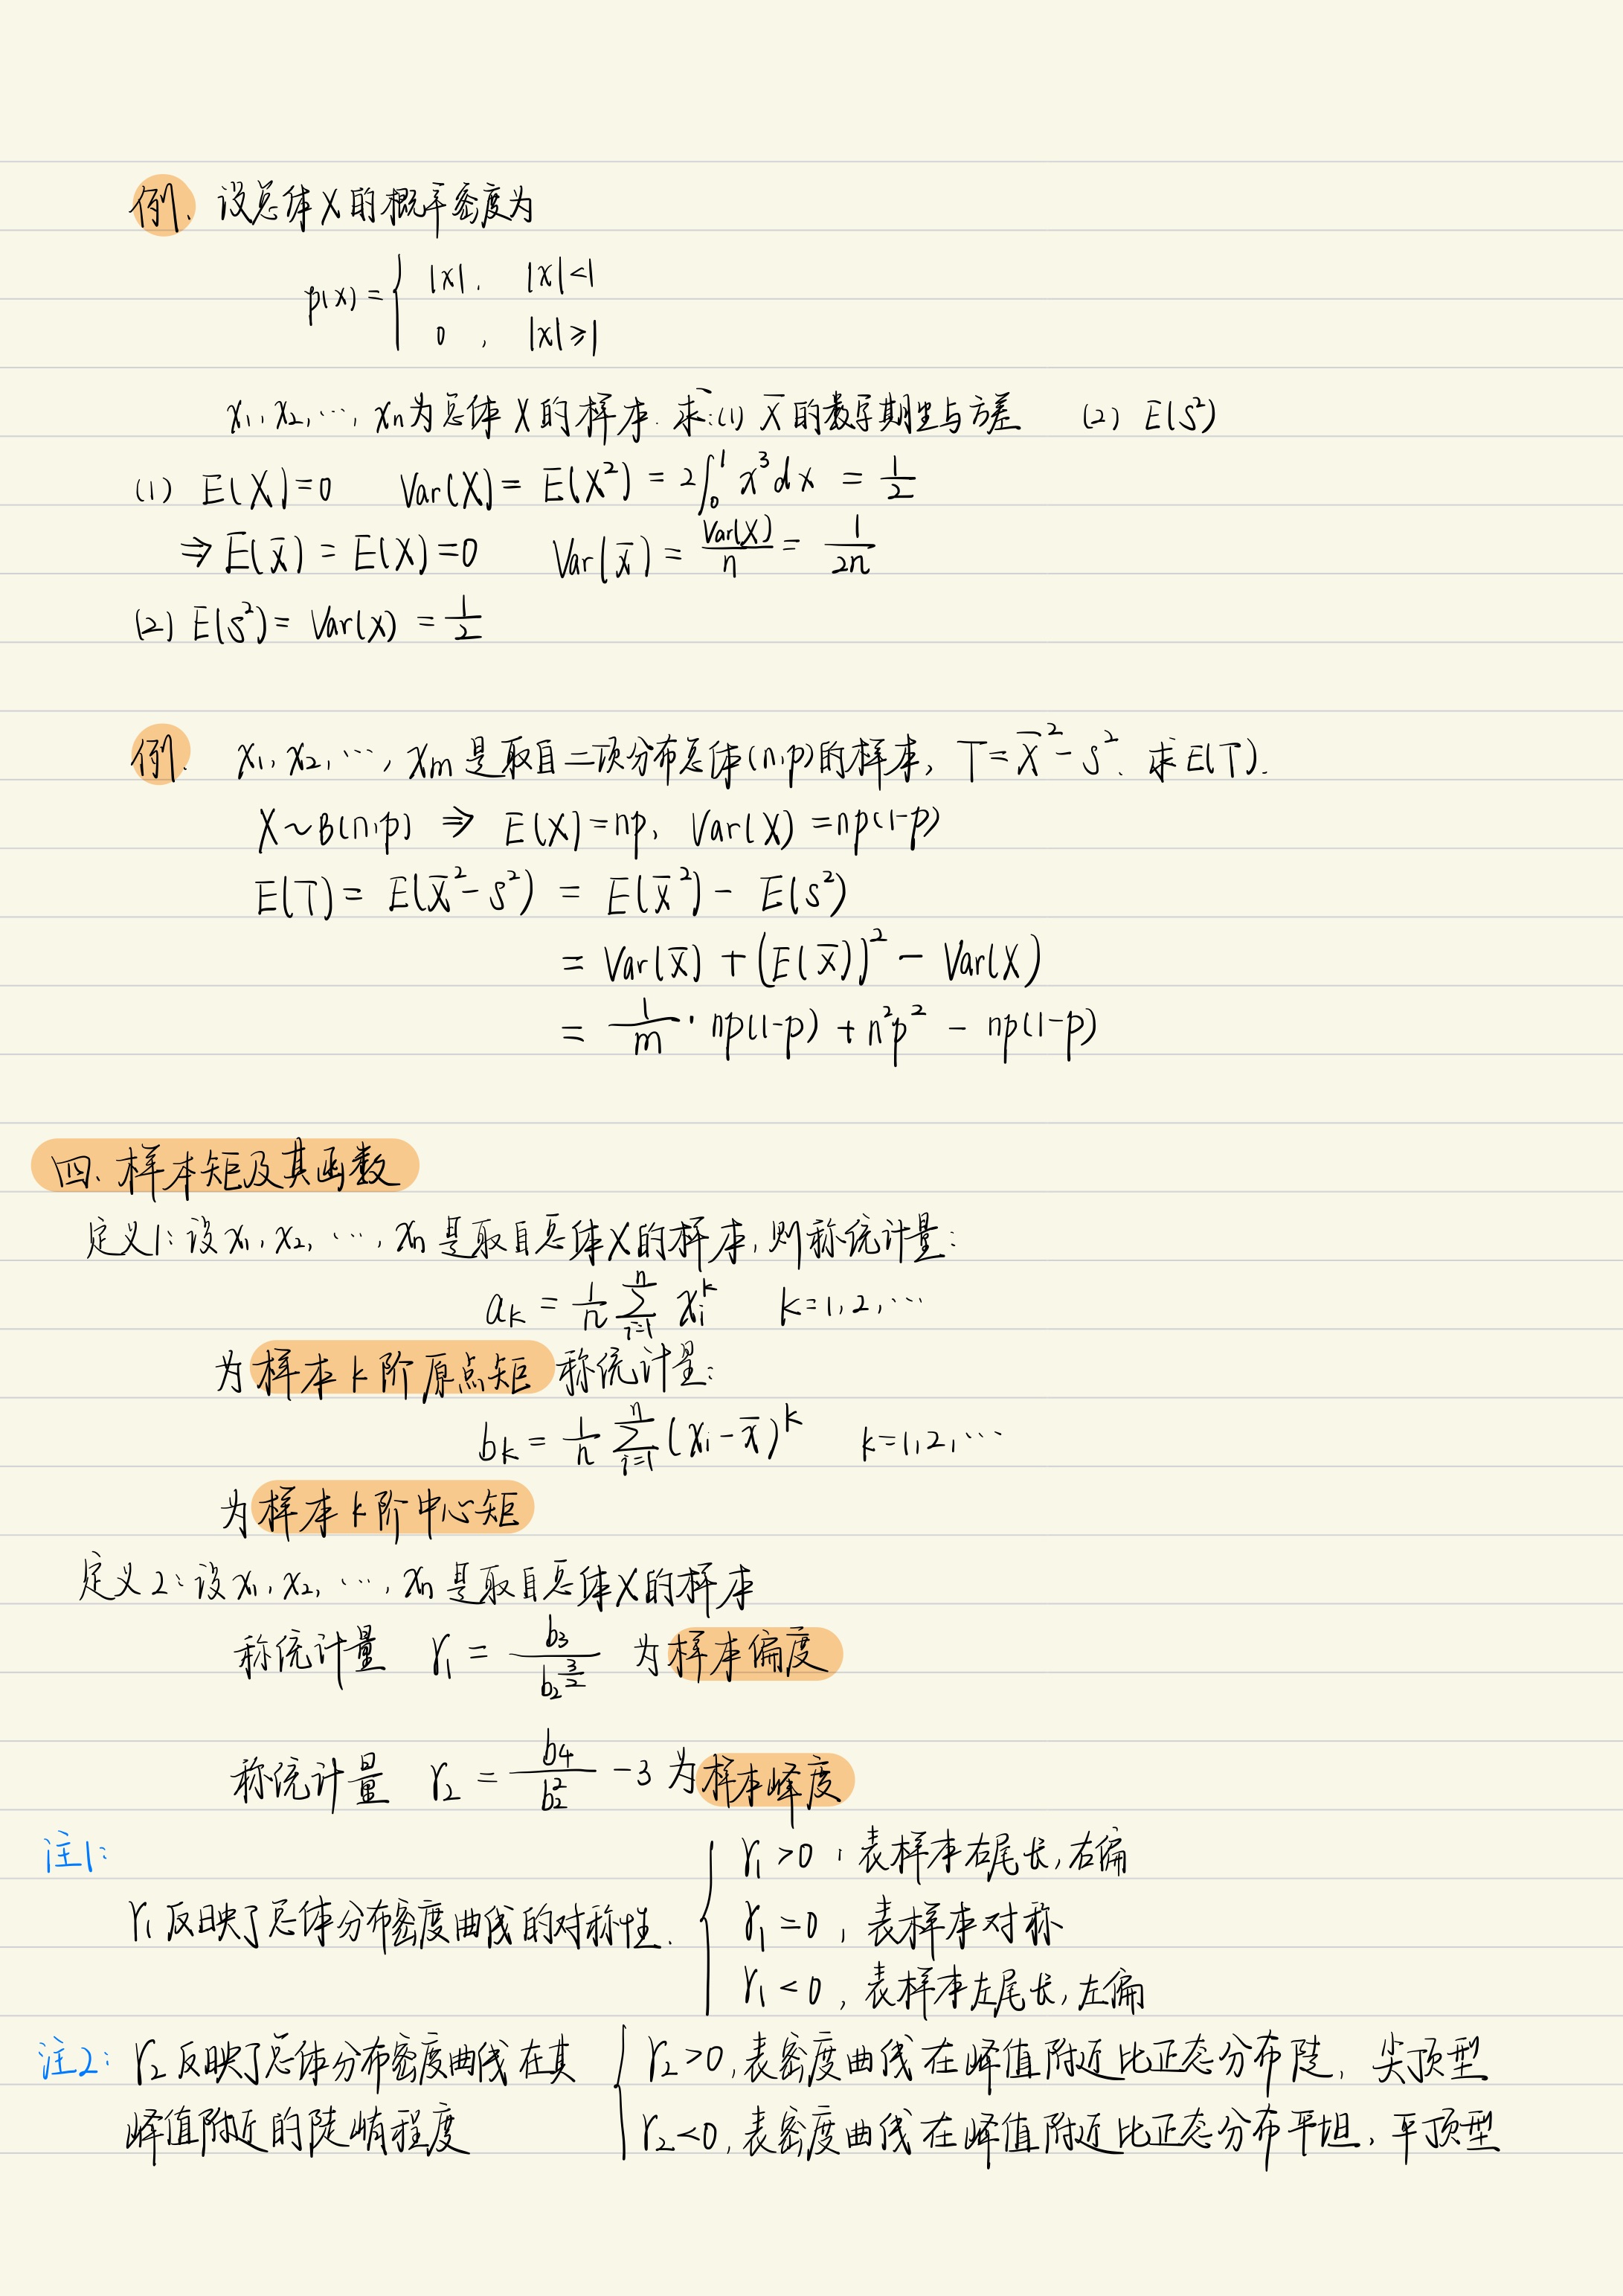 例. 设总体X的概率密度为
p(x) = { |x|, |x|<1
0, |x|≥1
x₁, x₂, ⋯, xn为总体X的样本. 求:(1) x̄的数学期望与方差 (2) E(s²)
(1) E(X)=0 Var(X) = E(X²) = 2∫₀¹ x³dx = 1/2
⇒ E(x̄) = E(X)=0 Var(x̄) = Var(X)/n = 1/2n
(2) E(s²) = Var(X) = 1/2
例. x₁, x₂, ⋯, xm 是取自二项分布总体(n,p)的样本, T = x̄² - s². 求E(T).
X~B(n,p) ⇒ E(X)=np, Var(X)=np(1-p)
E(T) = E(x̄² - s²) = E(x̄²) - E(s²)
= Var(x̄) + (E(x̄))² - Var(X)
= 1/m · np(1-p) + n²p² - np(1-p)
四. 样本矩及其函数
定义1: 设x₁, x₂, ⋯, xn是取自总体X的样本, 则称统计量:
ak = 1/n ∑ᵢ₌₁ⁿ xᵢᵏ k=1,2,⋯
为样本k阶原点矩 称统计量:
bk = 1/n ∑ᵢ₌₁ⁿ (xᵢ - x̄)ᵏ k=1,2,⋯
为样本k阶中心矩
定义2: 设x₁, x₂, ⋯, xn是取自总体X的样本
称统计量 γ₁ = b₃/b₂^(3/2) 为样本偏度
称统计量 γ₂ = b₄/b₂² - 3 为样本峰度
注1:
γ₁反映了总体分布密度曲线的对称性. { γ₁>0, 表样本右尾长, 右偏
γ₁=0, 表样本对称
γ₁<0, 表样本左尾长, 左偏
注2: γ₂反映了总体分布密度曲线在其 { γ₂>0, 表密度曲线在峰值附近比正态分布陡, 尖顶型
峰值附近的陡峭程度 γ₂<0, 表密度曲线在峰值附近比正态分布平坦, 平顶型